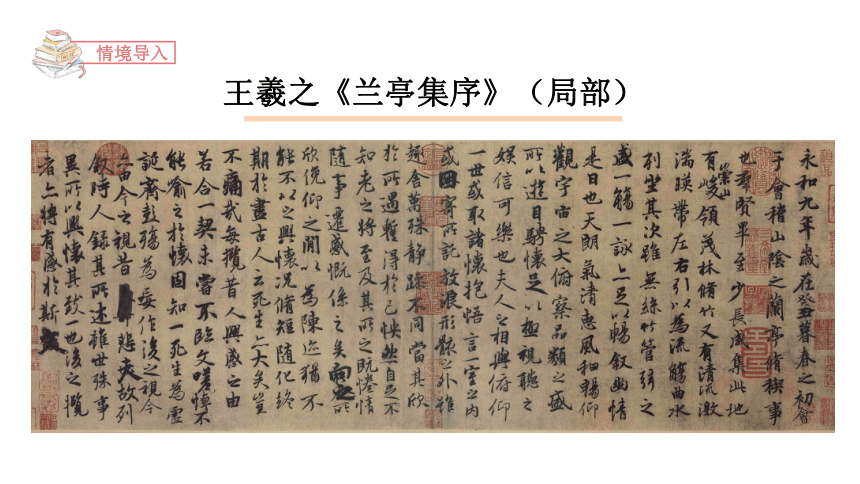 情境导入
王羲之《兰亭集序》（局部）
永和九年歲在癸丑暮春之初會
于會稽山陰之蘭亭脩稧事
也羣賢畢至少長咸集此地
有崇山峻領茂林脩竹又有清流激
湍暎帶左右引以為流觴曲水
列坐其次雖無絲竹管弦之
盛一觴一詠亦足以暢敘幽情
是日也天朗氣清惠風和暢仰
觀宇宙之大俯察品類之盛
所以遊目騁懷足以極視聽之
娛信可樂也夫人之相與俯仰
一世或取諸懷抱悟言一室之內
或因寄所託放浪形骸之外雖
趣舍萬殊靜躁不同當其欣
於所遇蹔得於己怏然自足不
知老之將至及其所之既惓情
隨事遷感慨係之矣向之所
欣俛仰之閒以為陳迹猶不
能不以之興懷況脩短隨化終
期於盡古人云死生亦大矣豈
不痛哉每攬昔人興感之由
若合一契未嘗不臨文嗟悼不
能喻之於懷固知一死生為虛
誕齊彭殤為妄作後之視今
亦由今之視昔悲夫故列
敘時人錄其所述雖世殊事
異所以興懷其致一也後之攬
者亦將有感於斯文